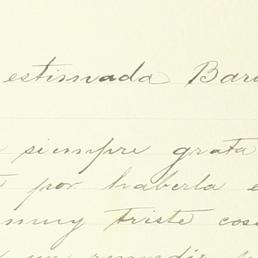 estimada Bar
siempre grata
por haberla e
muy triste cos
un remedio